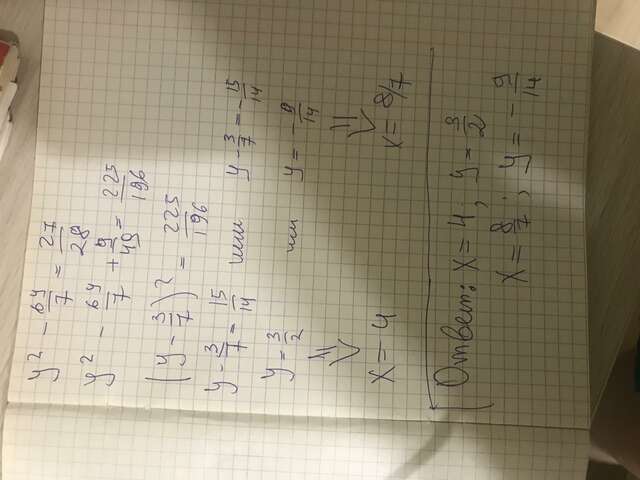 y² - 6y/7 = 27/28
y² - 6y/7 + 9/49 = 225/196
(y - 3/7)² = 225/196
y - 3/7 = 15/14 или y - 3/7 = -15/14
y = 3/2 или y = -9/14
⇓ ⇓
x = 4 x = 8/7
Ответ: x = 4; y = 3/2
x = 8/7; y = -9/14